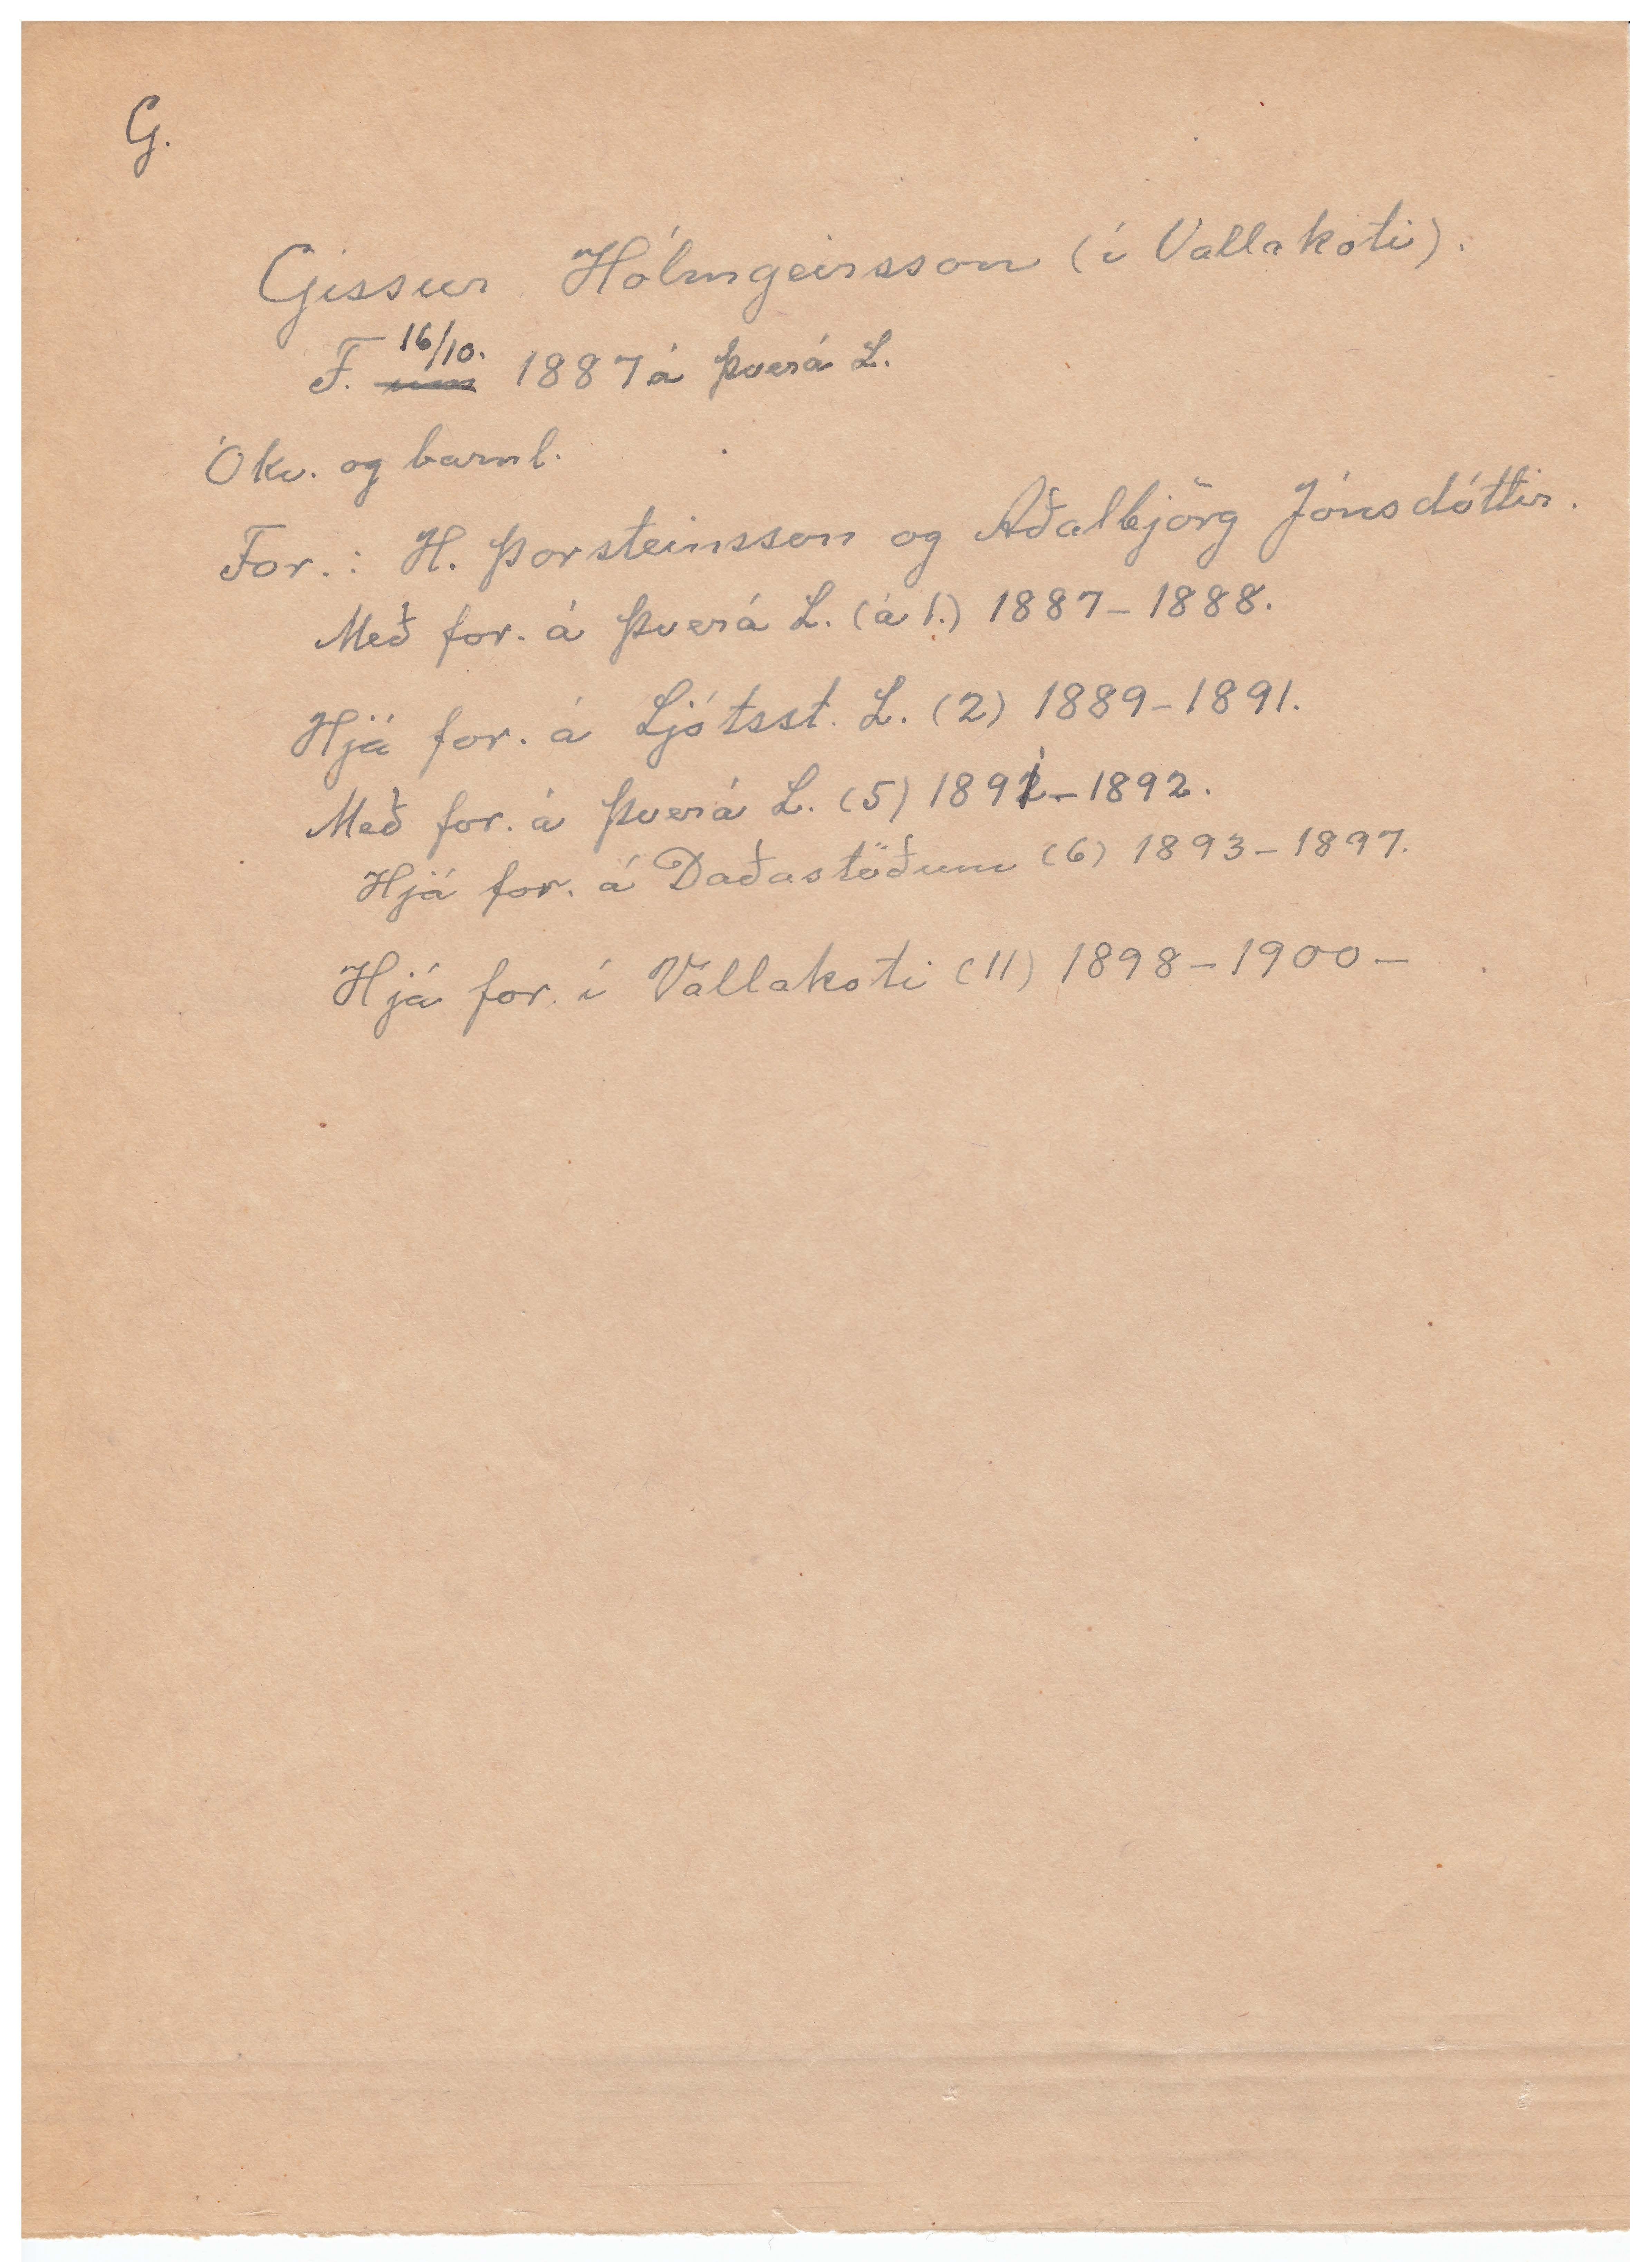 G.
Gissur Hólmgeirsson (í Vallakoti).
F. um 16/10. 1887 á Þverá L.
Ókv. og barnl.
For.: H. Þorsteinsson og Aðalbjörg Jónsdóttir.
Með for. á Þverá L. (á 1.) 1887-1888.
Hjá for. á Ljótsst. L. (2) 1889-1891.
Með for. á Þverá L. (5) 1891-1892.
Hjá for. á Daðastöðum (6) 1893-1897.
Hjá for. í Vallakoti (11) 1898-1900-